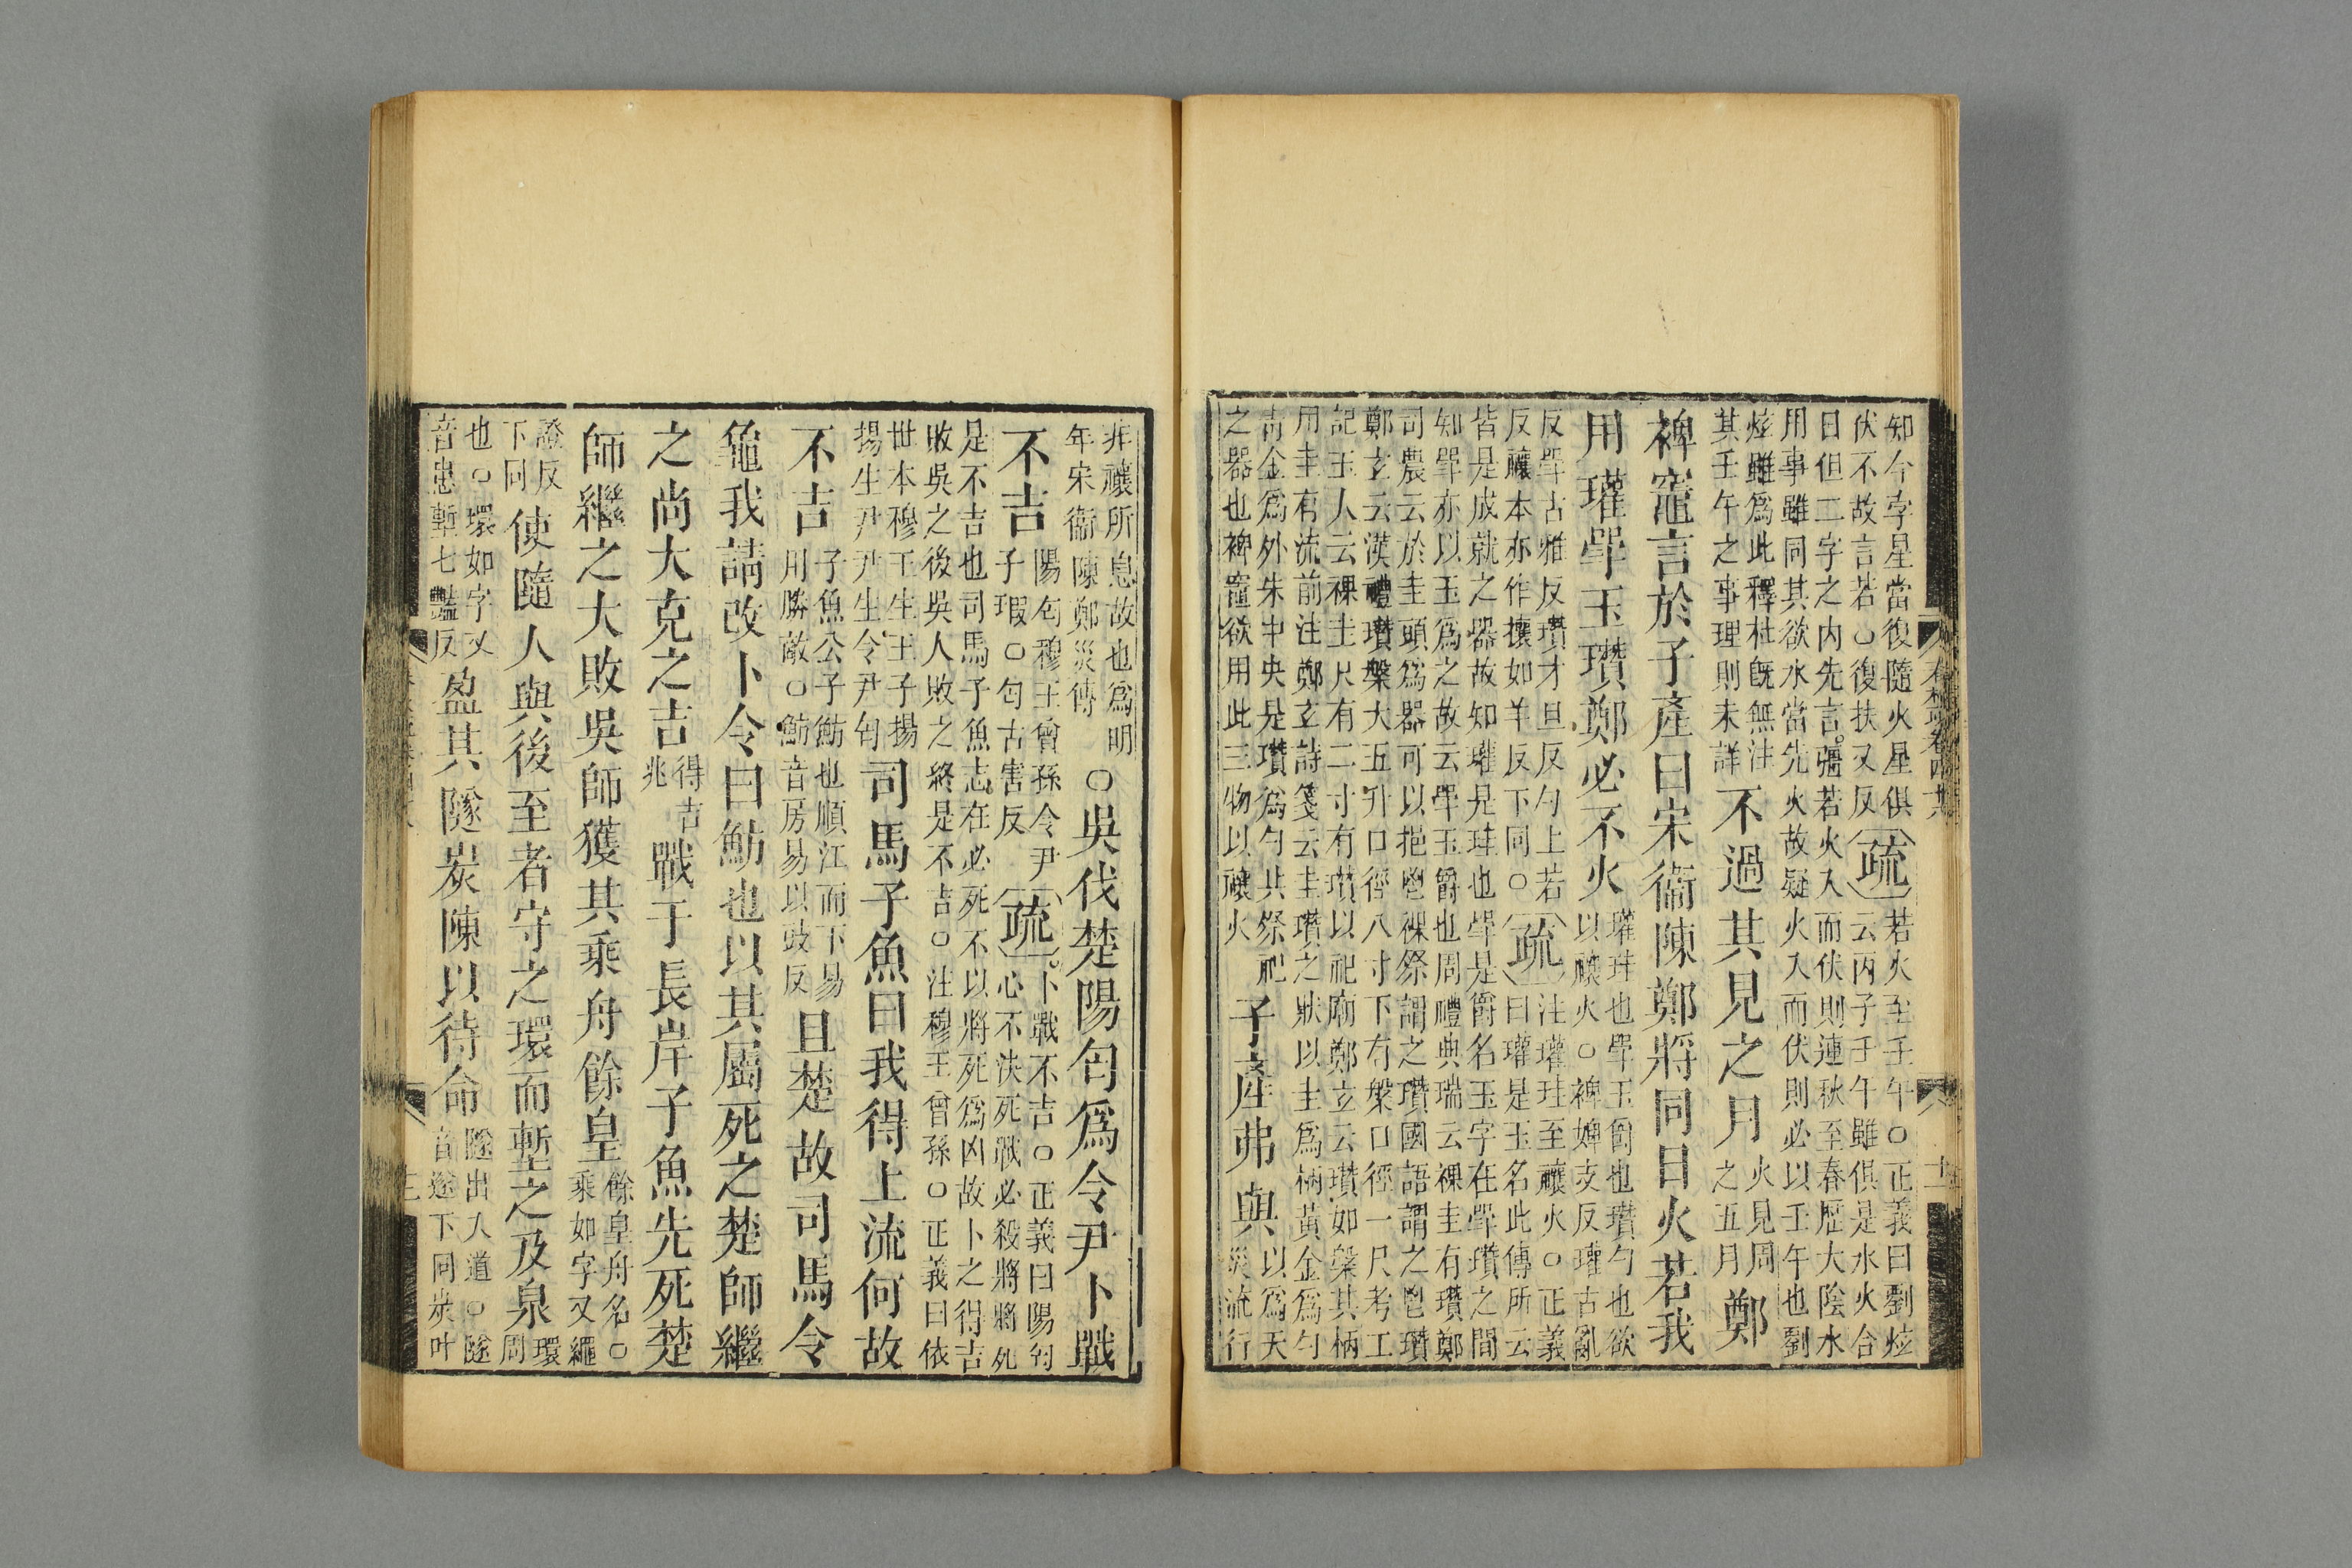 知今孛星當復隨火星俱
伏不故言若○復扶又反
疏
若火至壬午○正義曰劉炫
云丙子壬午雖俱是水火合
日但二字之内先言彊若火入而伏則連秋至春歷大陰水
用事雖同其欲水當先火故疑火入而伏則必以壬午也劉
炫雖爲此釋杜旣無注
其壬午之事理則未詳
不過其見之月
火見周
之五月
鄭
裨竈言於子產曰宋衞陳鄭將同日火若我
用瓘斝玉瓚鄭必不火
瓘珪也斝玉爵也瓚勺也欲
以禳火○裨婢支反瓘古亂
反斝古雅反瓚才旦反勺上若
反禳本亦作攘如羊反下同○
疏
注瓘珪至禳火○正義
曰瓘是玉名此傳所云
皆是成就之器故知瓘是珪也斝是爵名玉字在斝瓚之間
知斝亦以玉爲之故云斝玉爵也周禮典瑞云祼圭有瓚鄭
司農云於圭頭爲器可以挹鬯祼祭謂之瓚國語謂之鬯瓚
鄭玄云漢禮瓚槃大五升口徑八寸下有槃口徑一尺考工
記玉人云祼圭尺有二寸有瓚以祀廟鄭玄云瓚如槃其柄
用圭有流前注鄭玄詩箋云圭瓚之狀以圭爲柄黃金爲勺
青金爲外朱中央是瓚爲勺共祭祀
之器也裨竈欲用此三物以禳火
子產弗與
以爲天
災流行
非禳所息故也爲明
年宋衞陳鄭災傳
○吳伐楚陽匄爲令尹卜戰
不吉
陽匄穆王曾孫令尹
子瑕○匄古害反
疏
卜戰不吉○正義曰陽匄
心不決死戰必殺將將死
是不吉也司馬子魚志在必死不以將死爲凶故卜之得吉
敗吳之後吳人敗之終是不吉○注穆王曾孫○正義曰依
世本穆王生王子揚
揚生尹尹生令尹匄
司馬子魚曰我得上流何故
不吉
子魚公子魴也順江而下易
用勝敵○魴音房易以豉反
且楚故司馬令
龜我請改卜令曰魴也以其屬死之楚師繼
之尚大克之吉
得吉
兆
戰于長岸子魚先死楚
師繼之大敗吳師獲其乘舟餘皇
餘皇舟名○
乘如字又繩
證反
下同
使隨人與後至者守之環而塹之及泉
環
周
也○環如字又
音患塹七豔反
盈其隧炭陳以待命
隧出入道○隧
音遂下同炭叶